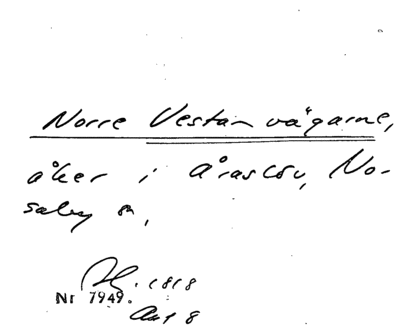 Norre Vestanvägarne,
åker i Åraslöv, No-
saby sn,
1818
Nr 7949.
Akt 8